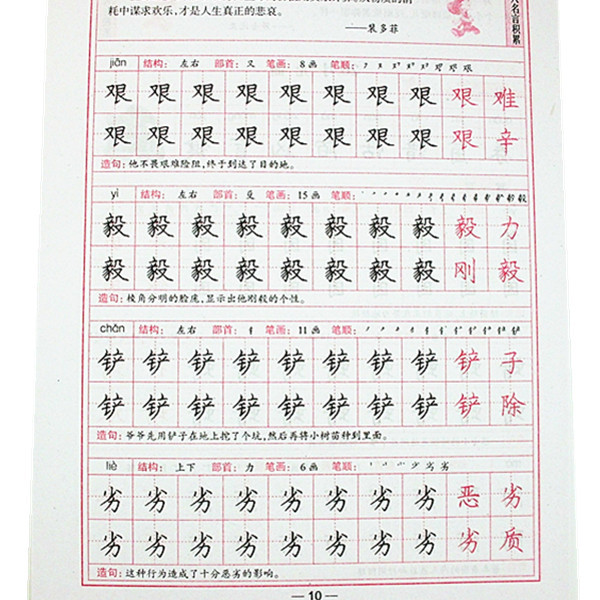 耗中谋求欢乐，才是人生真正的悲哀。
——裴多菲
人名言积累
jiān 结构： 左右 部首： 又 笔画： 8画 笔顺：
艰 艰 艰 艰 艰 艰 艰 艰 艰 难
艰 艰 艰 艰 艰 艰 艰 艰 艰 辛
造句：他不畏艰难险阻，终于到达了目的地。
yì 结构： 左右 部首： 殳 笔画： 15画 笔顺：
毅 毅 毅 毅 毅 毅 毅 毅 毅 力
毅 毅 毅 毅 毅 毅 毅 毅 刚 毅
造句：棱角分明的脸庞，显示出他刚毅的个性。
chǎn 结构： 左右 部首： 钅 笔画： 11画 笔顺：
铲 铲 铲 铲 铲 铲 铲 铲 铲 子
铲 铲 铲 铲 铲 铲 铲 铲 铲 除
造句：爷爷先用铲子在地上挖了个坑，然后再将小树苗种到里面。
liè 结构： 上下 部首： 力 笔画： 6画 笔顺：
劣 劣 劣 劣 劣 劣 劣 劣 恶 劣
劣 劣 劣 劣 劣 劣 劣 劣 劣 质
造句：这种行为造成了十分恶劣的影响。
— 10 —